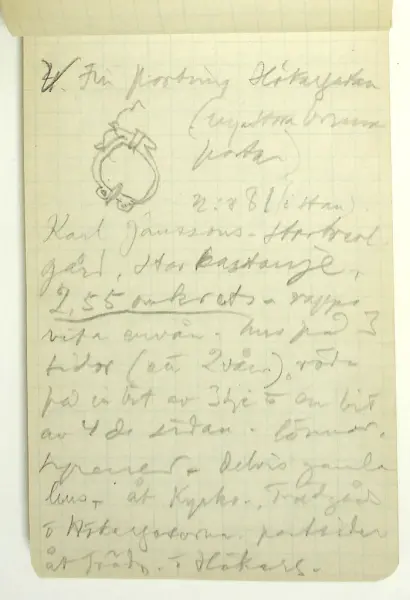 Fin portning Hökargatan
(nya stora bruna
portar)
n:r 81 (i stan)
Karl Jönssons. Stort vel
gård, stor kastanje,
2,55 omkrets. rappa
vita envån. hus på 3
sidor (ett 2vån.), röda
på en bit av 3dje o en bit
av 4de sidan. lönnar.
syrener. Delvis gamla
hus. åt Kyrko., Trädgård
o Hökargatorna. portsidor
åt Träd. o Hökarg.